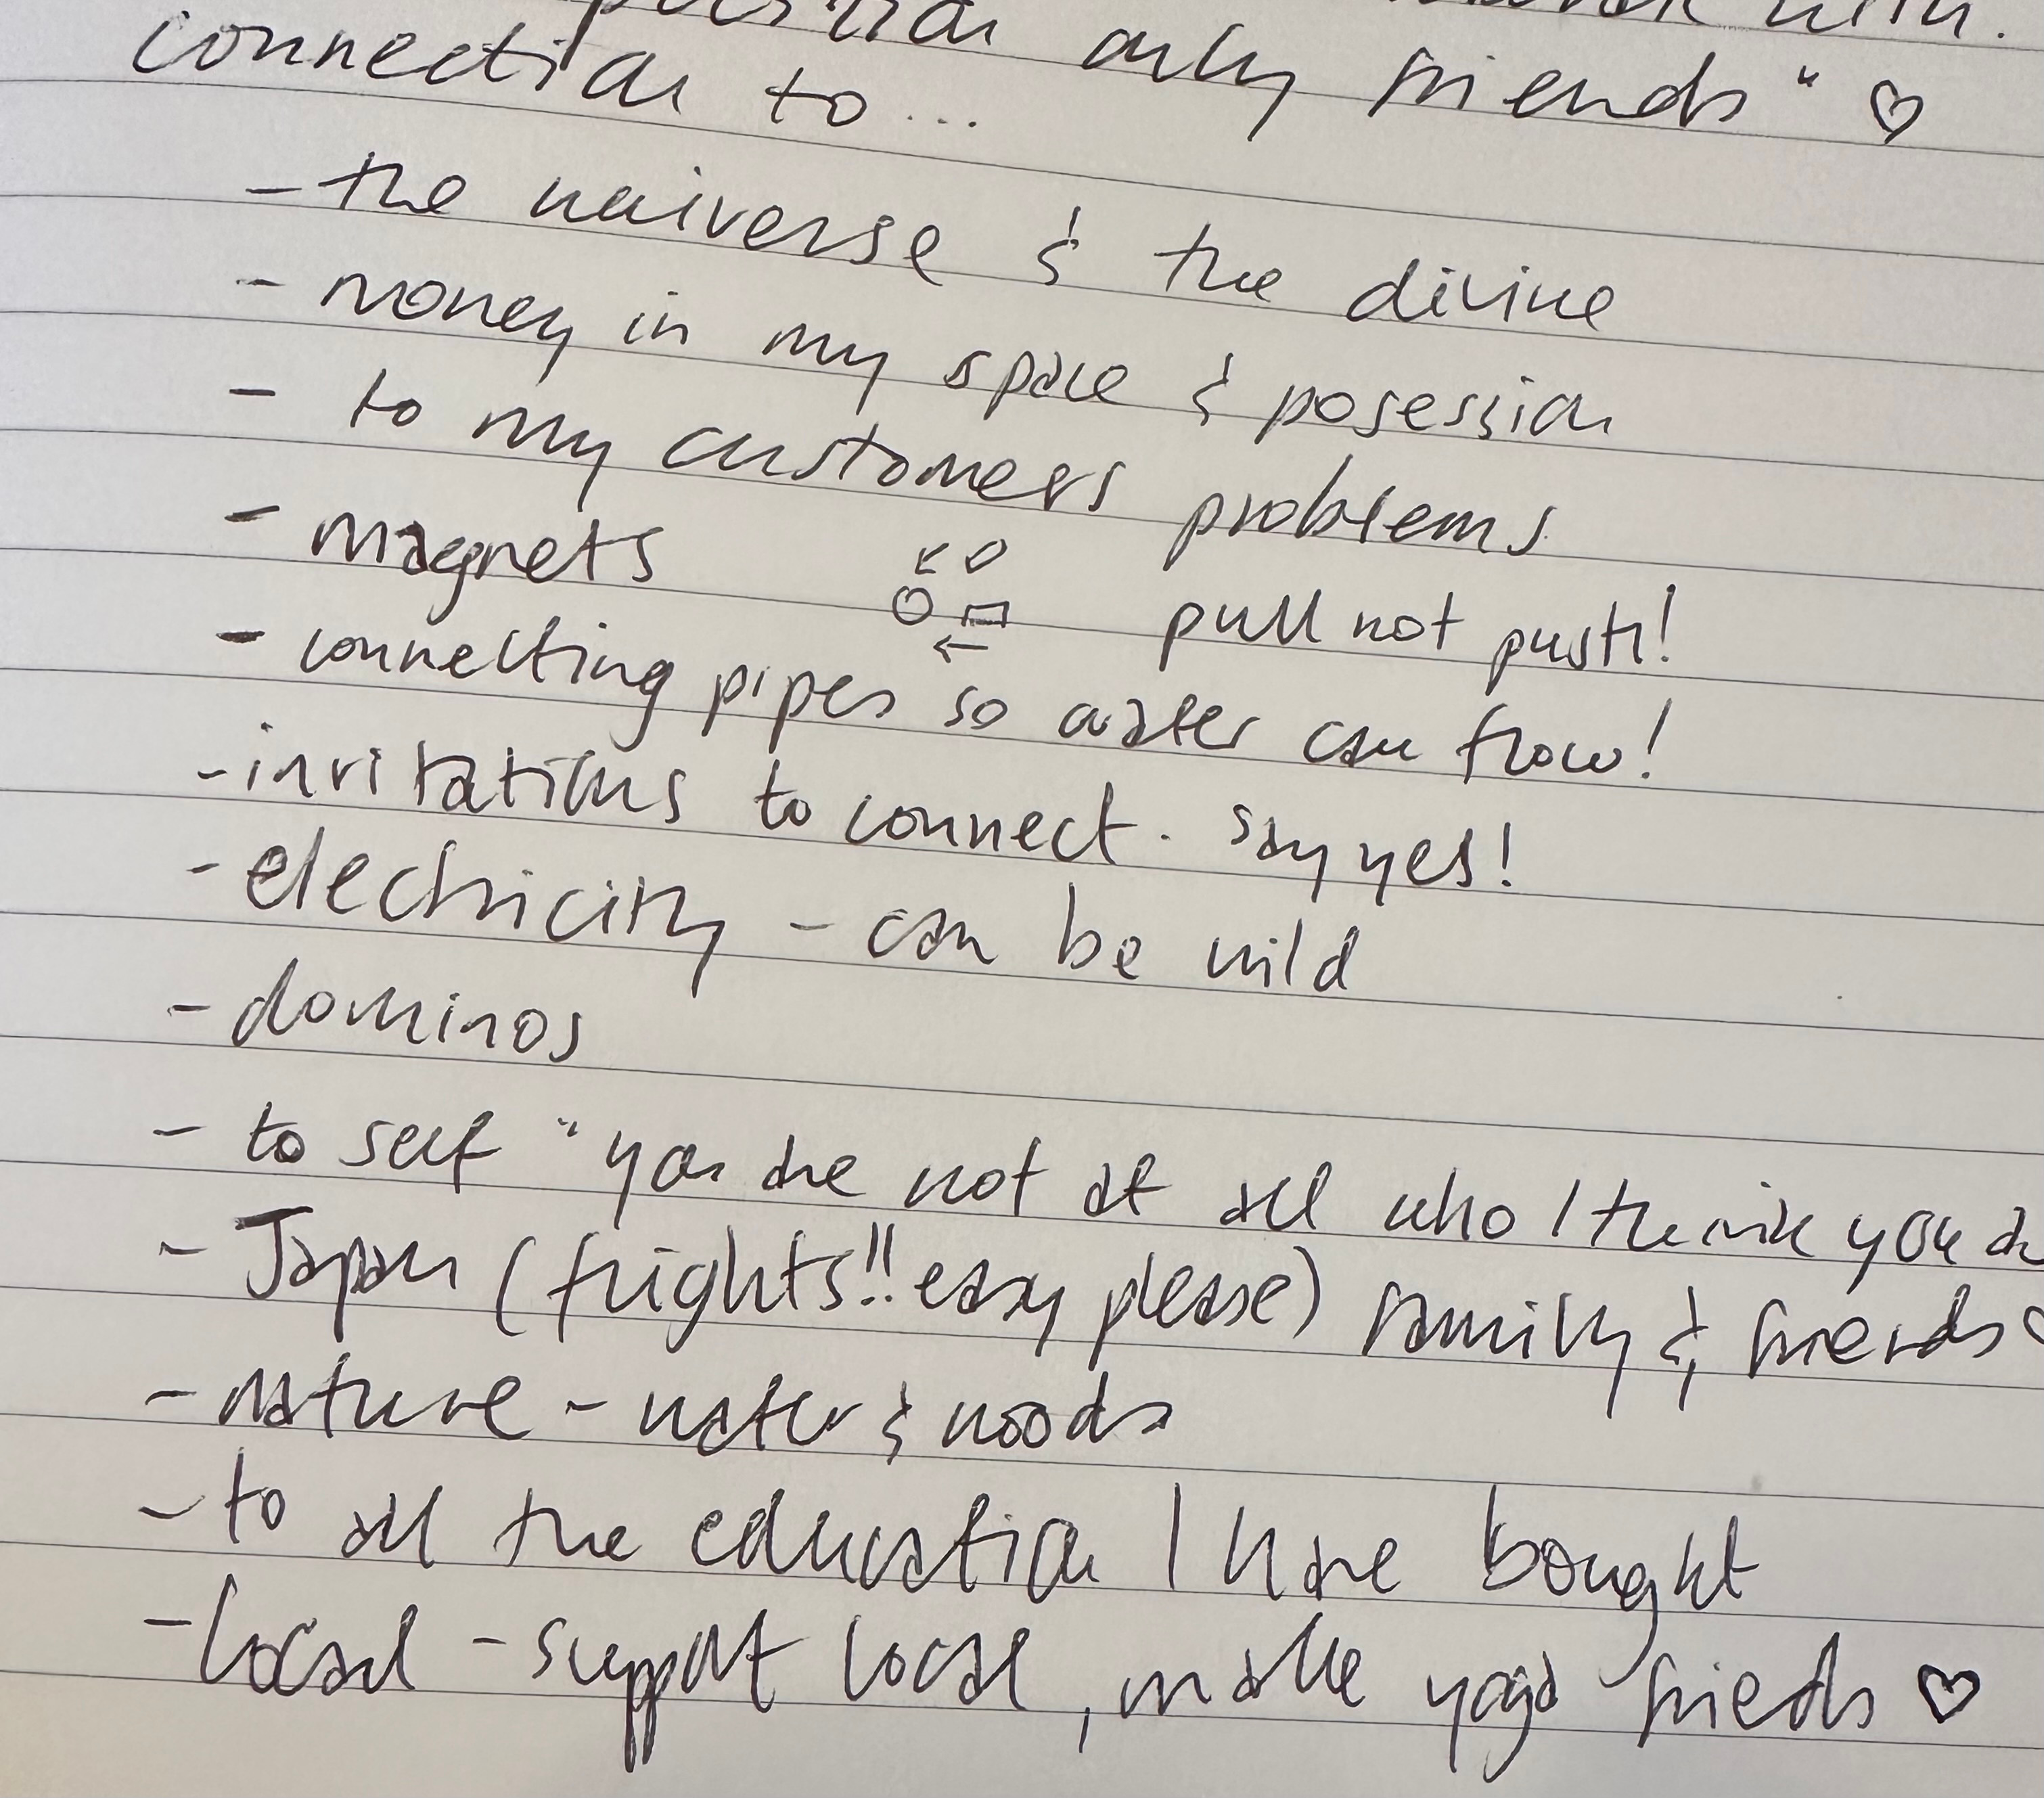 only friends" ♡
connection to...
- the universe & the divine
- money in my space & posession
- to my customers problems
- magnets pull not push!
- connecting pipes so water can flow!
- invitations to connect. say yes!
- electricity - can be wild
- dominos
- to self "you are not at all who I think you
- Japan (flights!! easy please) family & friends
- nature - water & woods
- to all the education I have bought
- local - support local, make yoga frieds ♡